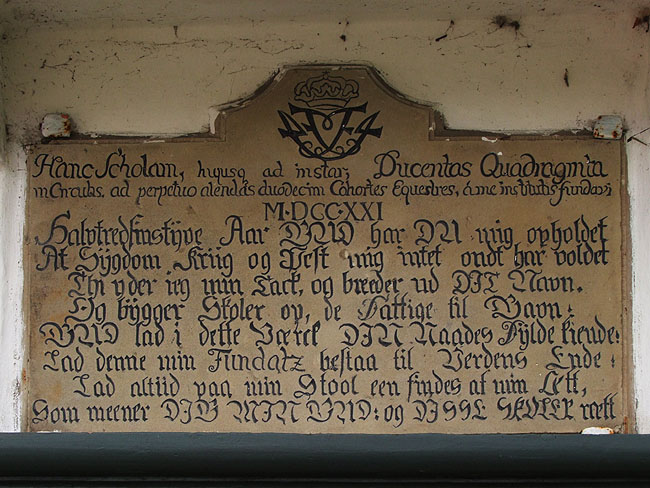 Hanc Scholam, hujusq ad instar, Ducentas Quadraginta
in Circulis, ad perpetuo alendas duodecim Cohortes Equestres, à me institutis fundavi
M·DCC·XXI
Halvtredsinstÿve Aar GUD har DU mig opholdet
At Sÿgdom Kriig og Pest mig intet ondt har voldet
Thi yder ieg min Tack, og breeder ud DIT Navn.
Og bÿgger Skoler op, de Fattige til Gavn:
GUD lad i dette Værck DIN Naades Fÿlde kiende:
Lad denne min Fundatz bestaa til Verdens Ende.
Lad altiid paa min Stool een findes af min Ætt,
Som meener DIG MIN GUD: og DISSE SKOLER rætt